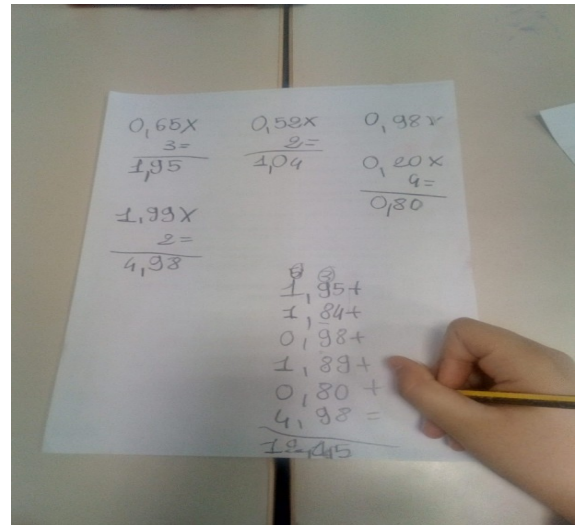 0,65x
3=
1,95
0,52x
2=
1,04
0,98x
0,20x
4=
0,80
1,99x
2=
4,98
1,95+
1,84+
0,98+
1,89+
0,80+
4,98=